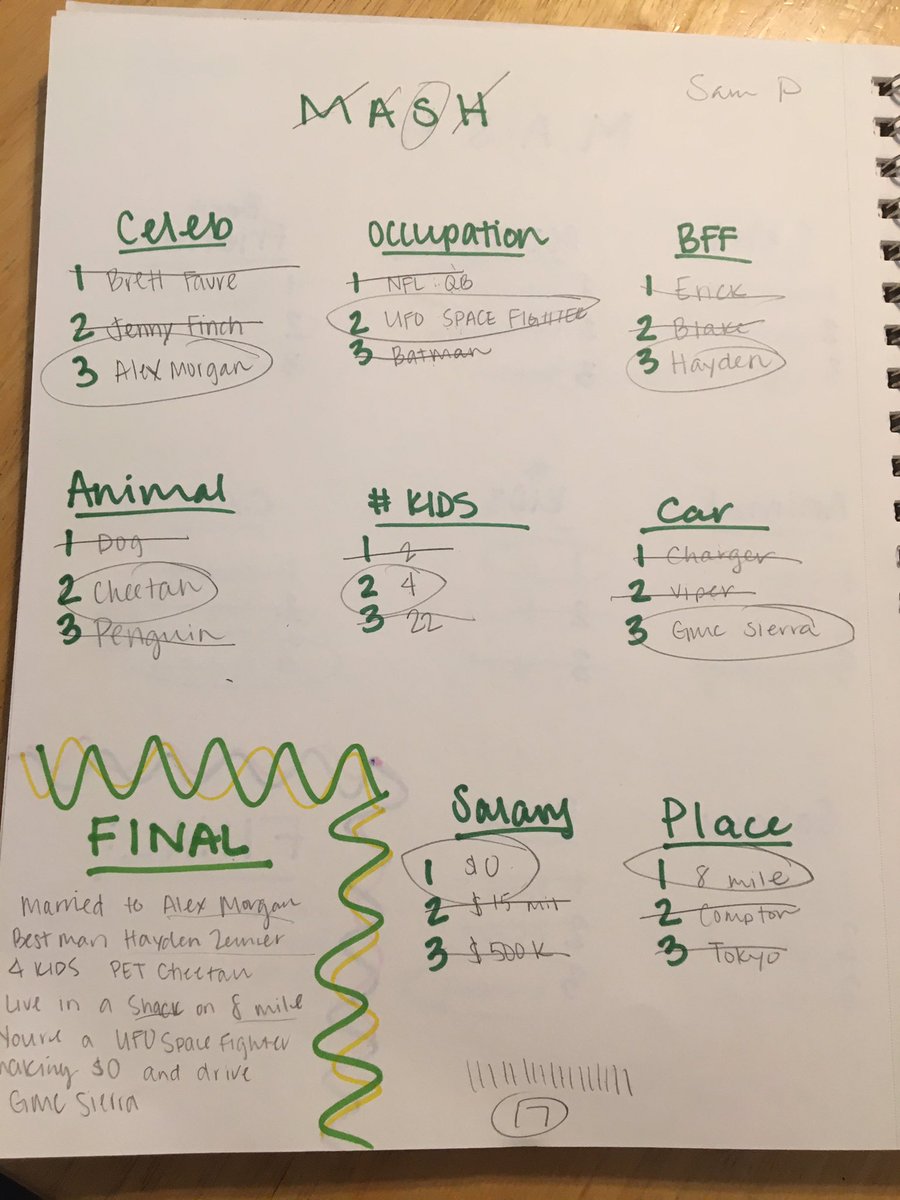 MASH
Sam P
Celeb
1 Brett Favre
2 Jenny Finch
3 Alex Morgan
Occupation
1 NFL QB
2 UFO SPACE FIGHTER
3 Batman
BFF
1 Erick
2 Blake
3 Hayden
Animal
1 Dog
2 Cheetah
3 Penguin
# KIDS
1 2
2 4
3 22
Car
1 Charger
2 Viper
3 GMC Sierra
Salary
1 $0
2 $15 mil
3 $500K
Place
1 8 mile
2 Compton
3 Tokyo
FINAL
Married to Alex Morgan
Best man Hayden
4 KIDS PET Cheetah
Live in a Shack on 8 mile
You're a UFO Space Fighter
making $0 and drive
GMC Sierra
17